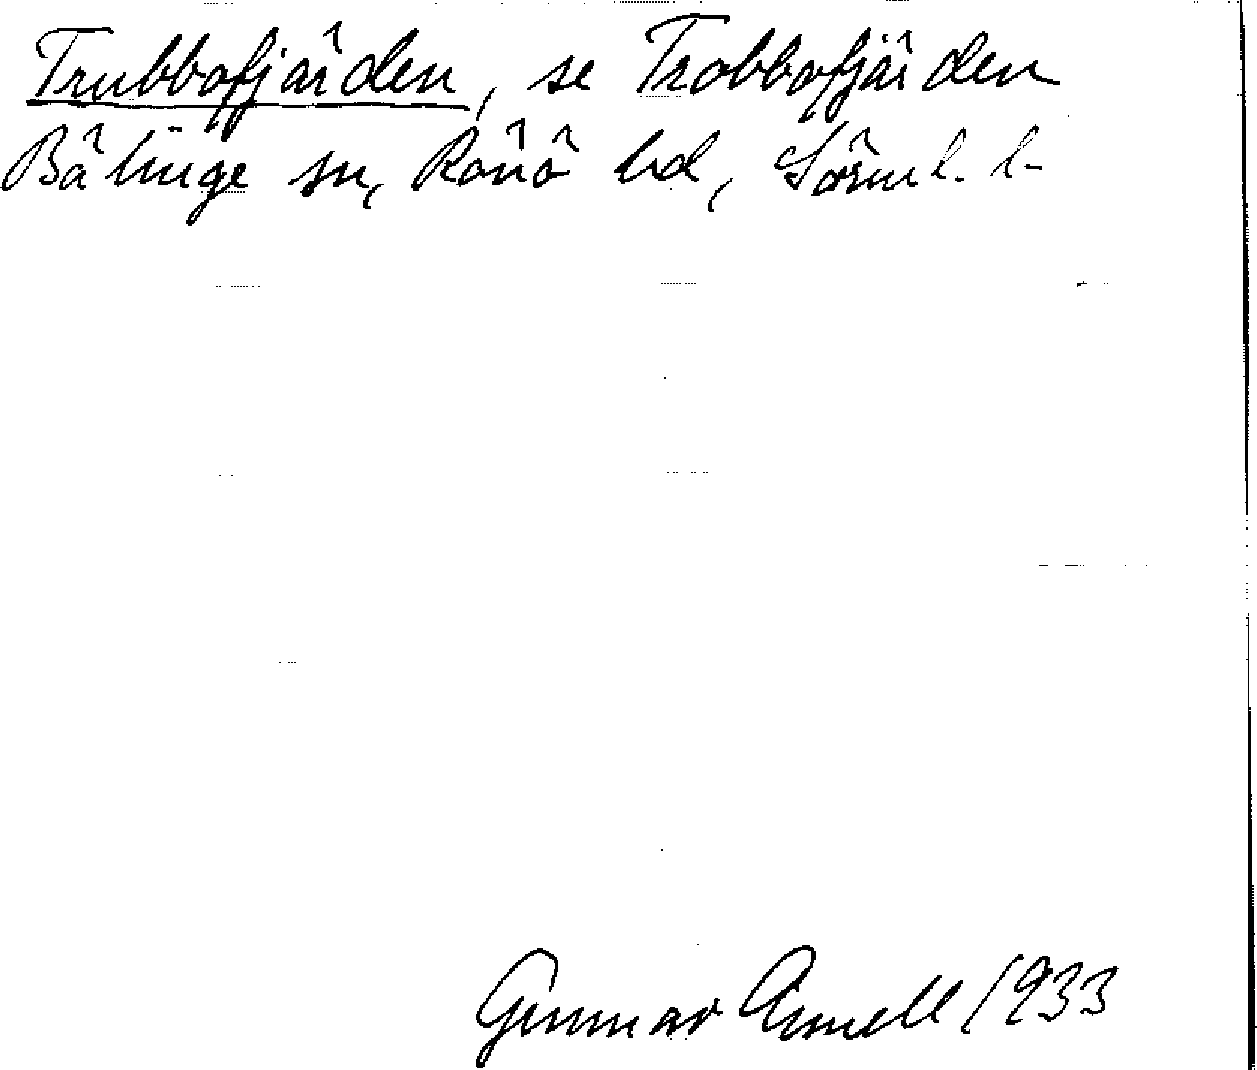 Trubbofjärden, se Trobbofjärden
Bälinge sn, Rönö hd, Sörml. l.
Gunnar Arnell 1933